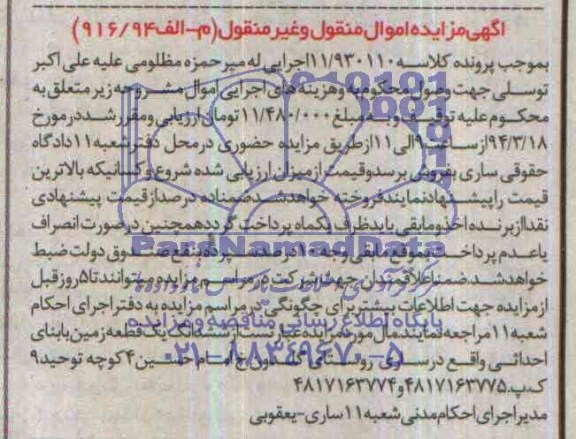 آگهی مزایده اموال منقول وغیر منقول (م-الف ۹۱۶/۹۴)
بموجب پرونده کلاسه ۱۱/۹۳۰۱۱۰ اجرایی له میر حمزه مظلومی علیه علی اکبر
توسلی جهت وصول محکوم به وهزینه های اجرایی اموال مشروحه زیر متعلق به
محکوم علیه توقیف وبه مبلغ ۱۱/۴۸۰/۰۰۰ تومان ارزیابی ومقرر شد در مورخ
۹۴/۳/۱۸ از ساعت ۹ الی ۱۱ از طریق مزایده حضوری در محل دفتر شعبه ۱۱ دادگاه
حقوقی ساری بفروش برسد وقیمت از میزان ارزیابی شده شروع وکسانیکه بالاترین
قیمت را پیشنهاد نمایند فروخته خواهد شد ضمنا ده درصد از قیمت پیشنهادی
نقدا از برنده اخذ ومابقی باید ظرف یکماه پرداخت گردد همچنین در صورت انصراف
یا عدم پرداخت بموقع مابقی وجه ۱۰ درصد سپرده بنفع صندوق دولت ضبط
خواهد شد ضمنا علاقمندان جهت شرکت در مراسم مزایده میتوانند تا ۵ روز قبل
از مزایده جهت اطلاعات بیشتر برای چگونگی در مراسم مزایده به دفتر اجرای احکام
شعبه ۱۱ مراجعه نمایند اموال مورد مزایده عبارتست از ششدانگ یک قطعه زمین بابنای
احداثی واقع در ساری روستای خ امام حسین ۴ کوچه توحید ۹
ک.پ ۴۸۱۷۱۶۳۷۷۵ و ۴۸۱۷۱۶۳۷۷۴
مدیر اجرای احکام مدنی شعبه ۱۱ ساری - یعقوبی
ParsNamadData
پایگاه اطلاع رسانی مناقصه و مزایده
۰۲۱-۸۸۳۴۹۶۷۰-۵